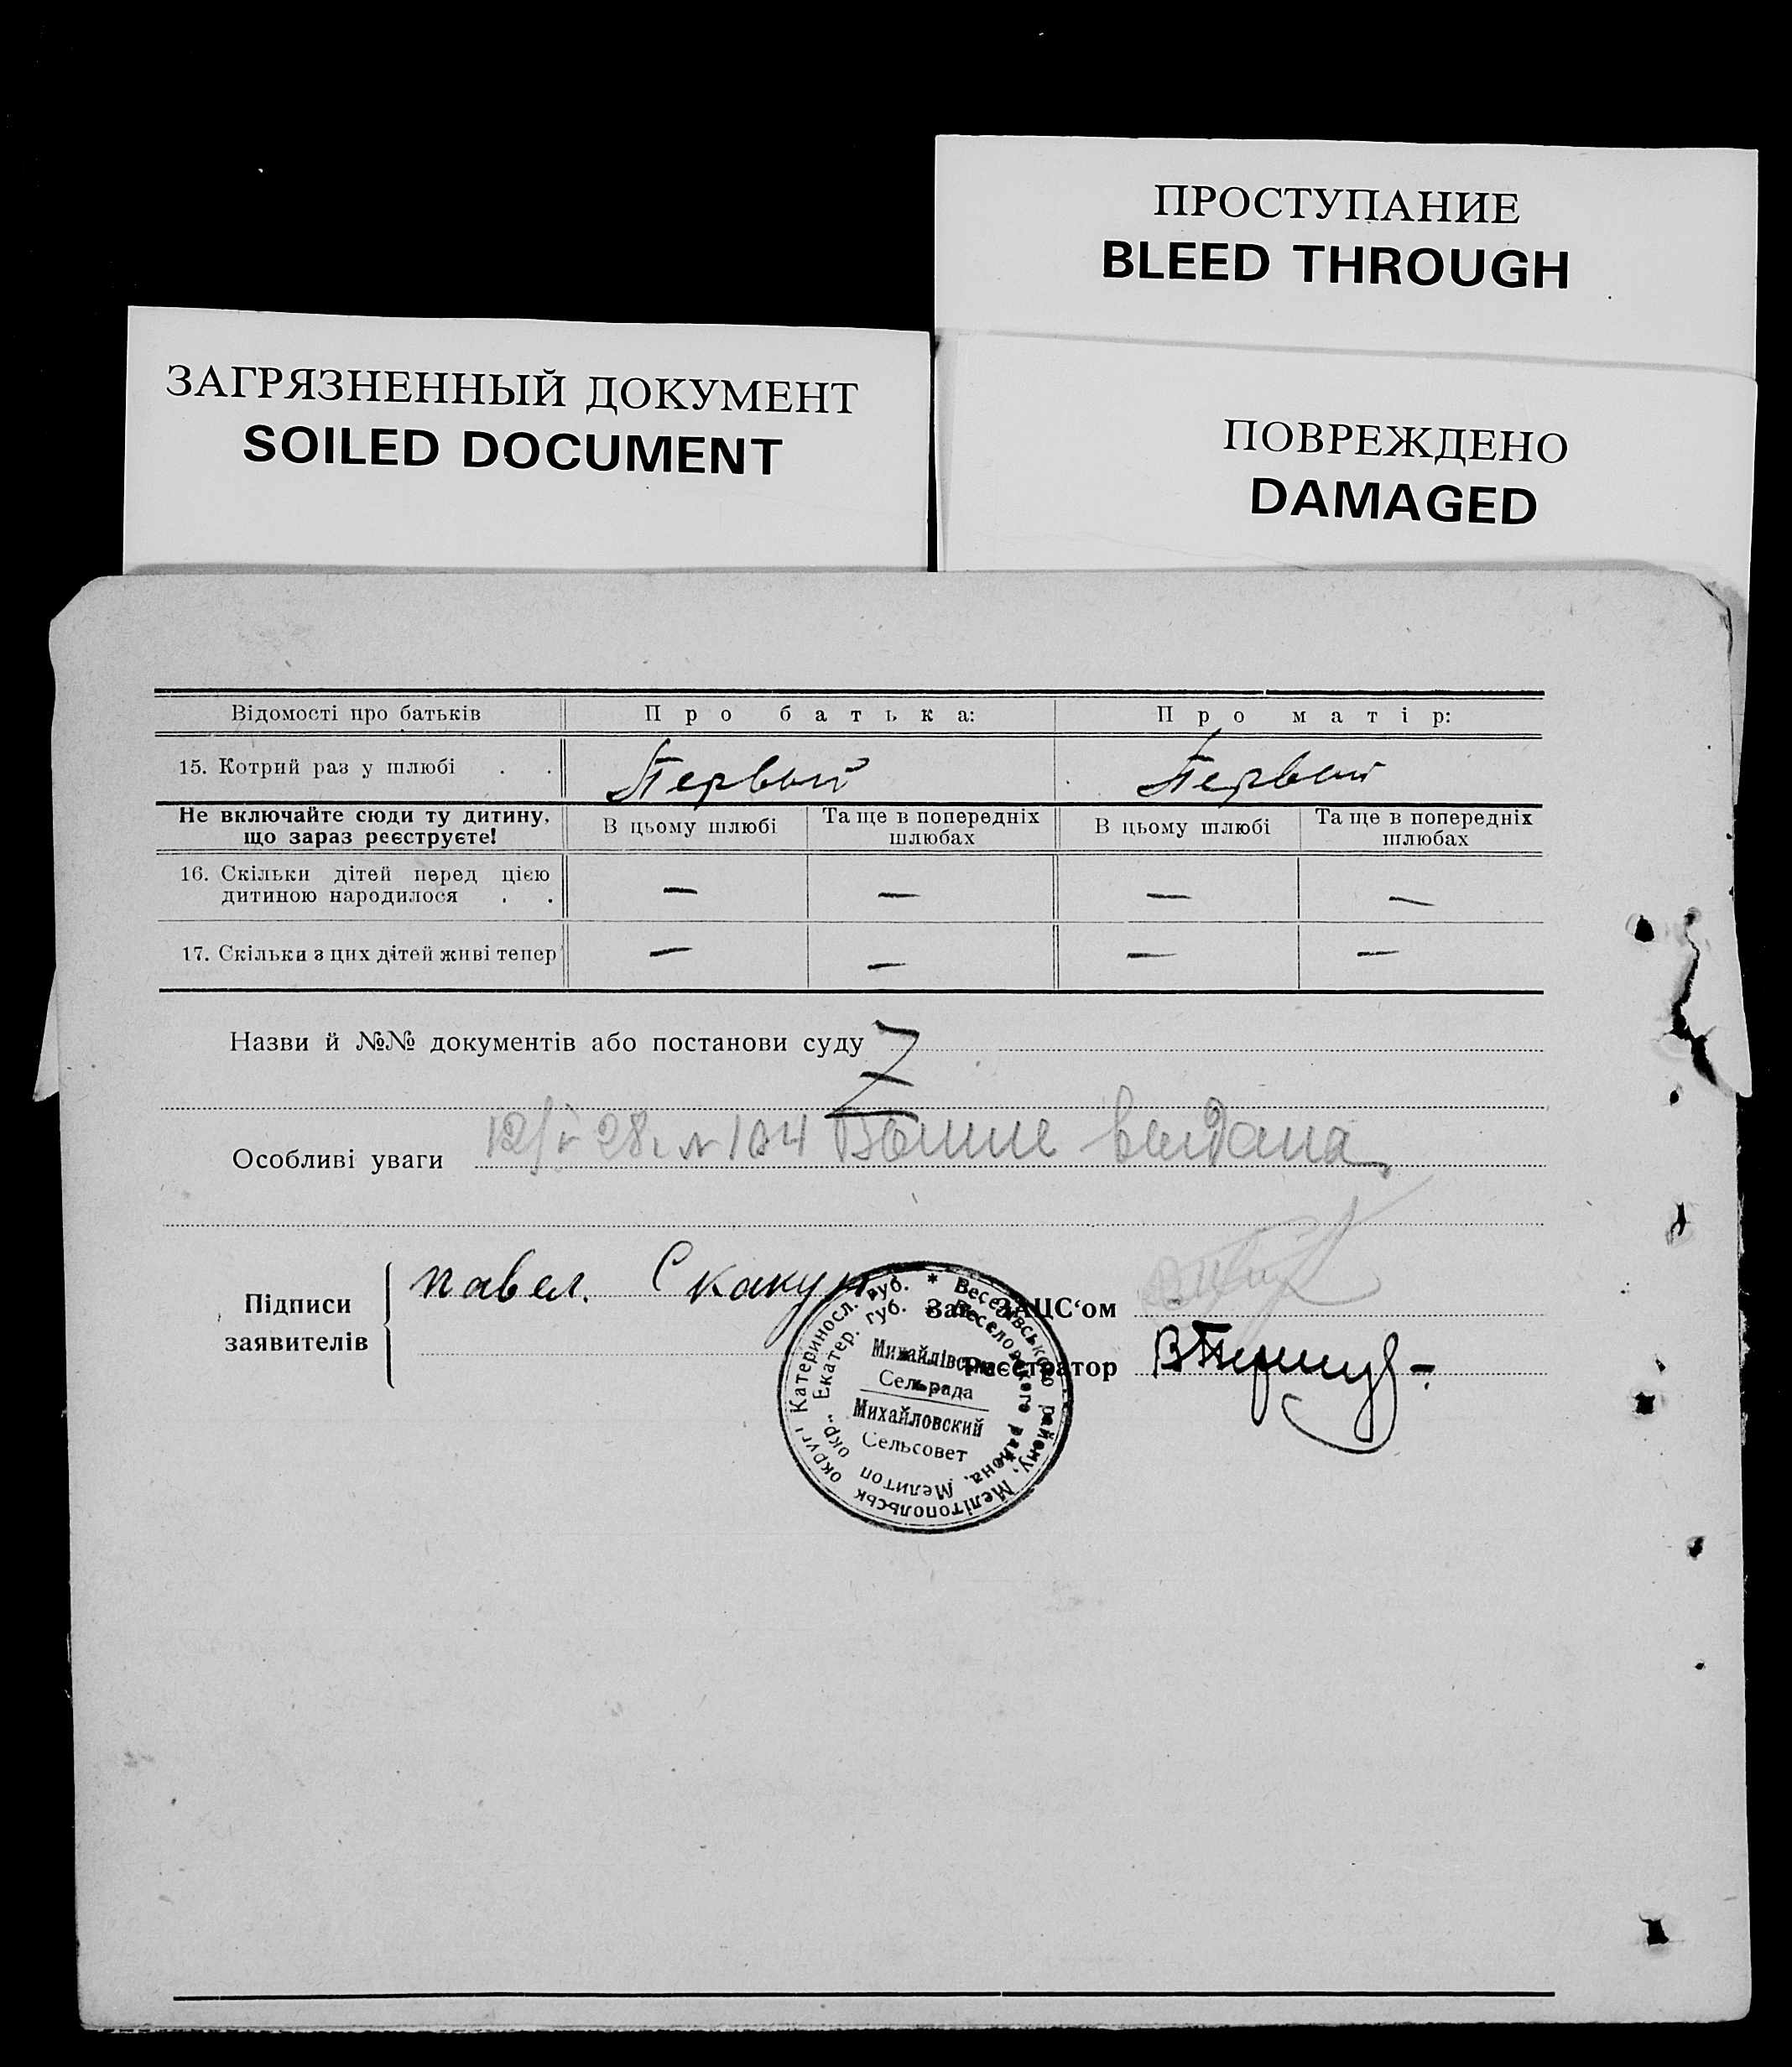 ПРОСТУПАНИЕ
BLEED THROUGH
ЗАГРЯЗНЕННЫЙ ДОКУМЕНТ
SOILED DOCUMENT
ПОВРЕЖДЕНО
DAMAGED
Відомості про батьків Про батька: Про матір:
15. Котрий раз у шлюбі . . Первый Первый
Не включайте сюди ту дитину, що зараз реєструєте! В цьому шлюбі Та ще в попередніх шлюбах В цьому шлюбі Та ще в попередніх шлюбах
16. Скільки дітей перед цією дитиною народилося . . — — — —
17. Скільки з цих дітей живі тепер — — — —
Назви й №№ документів або постанови суду
Особливі уваги выдана
Підписи заявителів
павел. Скакун
Зав. ЗАЦС‘ом
Реєстратор
Катеринос. губ. * Веселівського району, Мелітопольськ округи
Екатер. губ. * Веселовского района, Мелитоп окр.
Михайлівська
Сельрада
Михайловский
Сельсовет